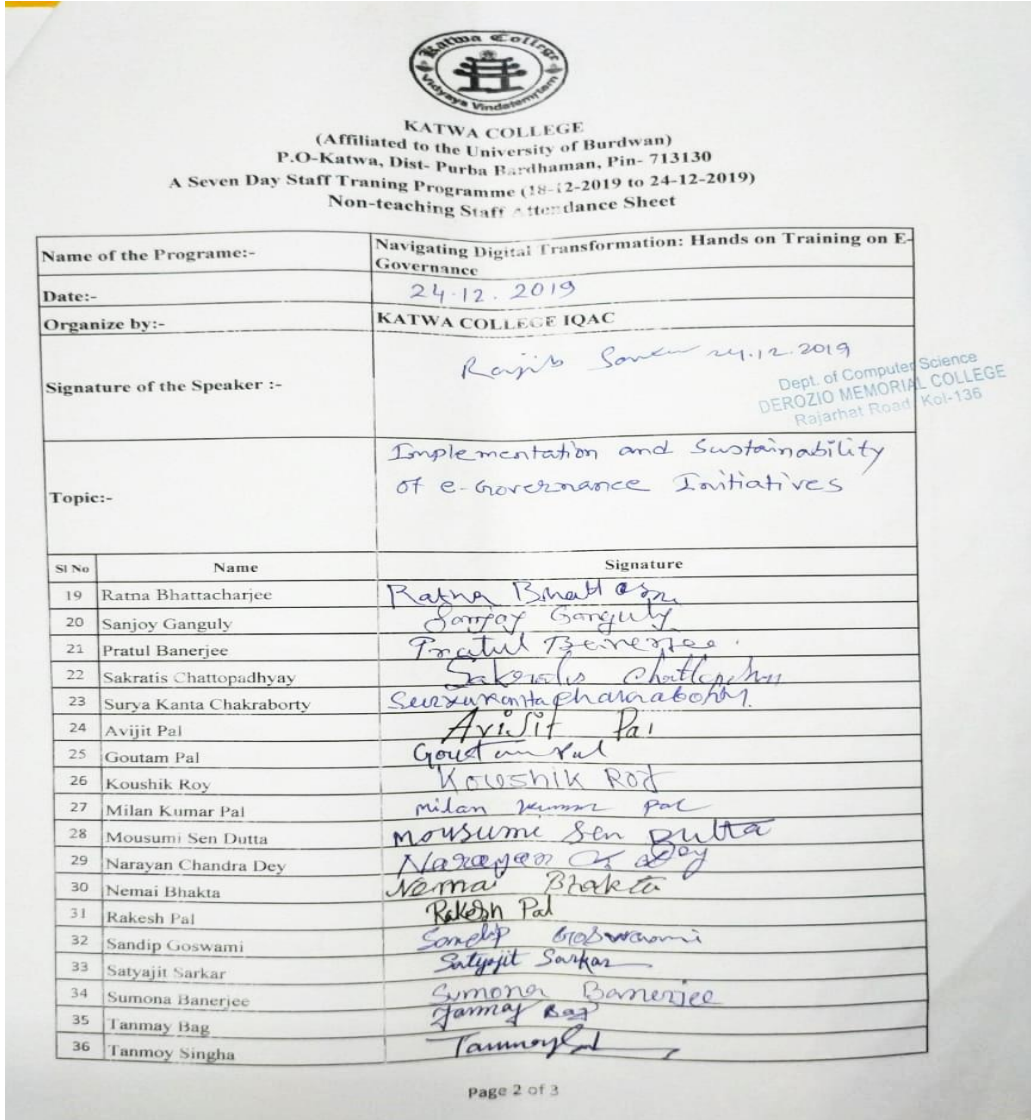 Katwa College
Vidyaya Vindatemrtam
KATWA COLLEGE
(Affiliated to the University of Burdwan)
P.O-Katwa, Dist- Purba Bardhaman, Pin- 713130
A Seven Day Staff Traning Programme (18-12-2019 to 24-12-2019)
Non-teaching Staff Attendance Sheet
Name of the Programe:- Navigating Digital Transformation: Hands on Training on E-
Governance
Date:- 24.12.2019
Organize by:- KATWA COLLEGE IQAC
Signature of the Speaker :- Rajib 24.12.2019
Dept. of Computer Science
DEROZIO MEMORIAL COLLEGE
Rajarhat Road, Kol-136
Topic:- Implementation and Sustainability
of e-Governance Initiatives
Sl No Name Signature
19 Ratna Bhattacharjee Ratna
20 Sanjoy Ganguly Sanjoy Ganguly
21 Pratul Banerjee Pratul Banerjee.
22 Sakratis Chattopadhyay Sakratis
23 Surya Kanta Chakraborty
24 Avijit Pal AviJit Pal
25 Goutam Pal Goutam Pal
26 Koushik Roy Koushik Roy
27 Milan Kumar Pal Milan Kumar Pal
28 Mousumi Sen Dutta Mousumi Sen Dutta
29 Narayan Chandra Dey Narayan Ch Dey
30 Nemai Bhakta Nemai Bhakta
31 Rakesh Pal Rakesh Pal
32 Sandip Goswami Sandip Goswami
33 Satyajit Sarkar Satyajit Sarkar
34 Sumona Banerjee Sumona Banerjee
35 Tanmay Bag Tanmay Bag
36 Tanmoy Singha Tanmoy
Page 2 of 3